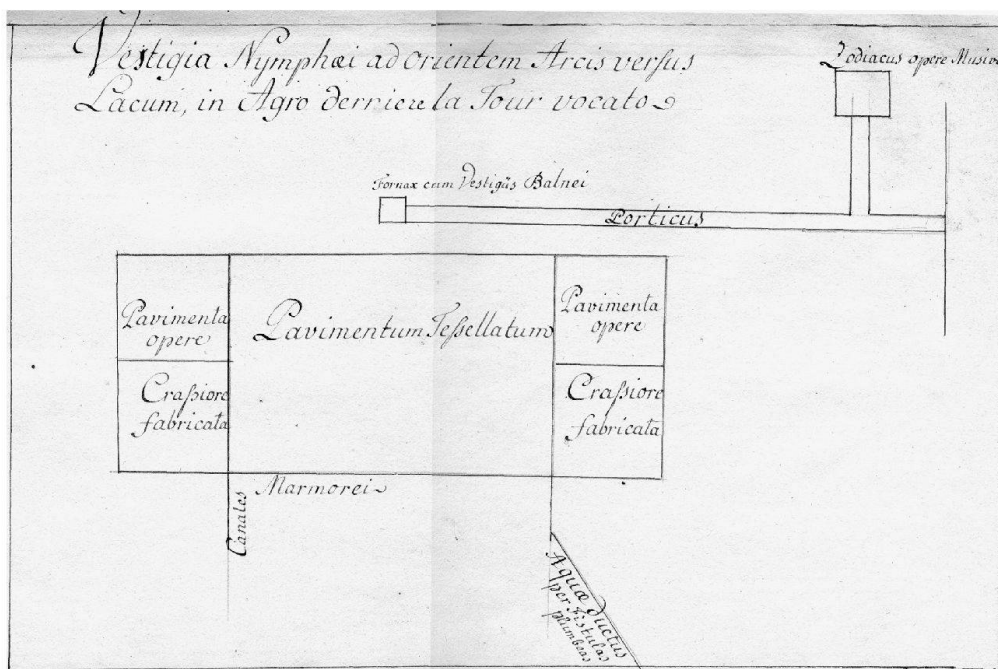 Vestigia Nymphæi ad orientem Arcis versus
Lacum, in Agro derriere la Tour vocato
Zodiacus opere Musivo
Fornax cum Vestigiis Balnei
Porticus
Pavimenta
opere
Crassiore
fabricata
Pavimentum Tessellatum
Pavimenta
opere
Crassiore
fabricata
Canales
Marmorei
Aquæ ductus
per fistulas
plumbeas